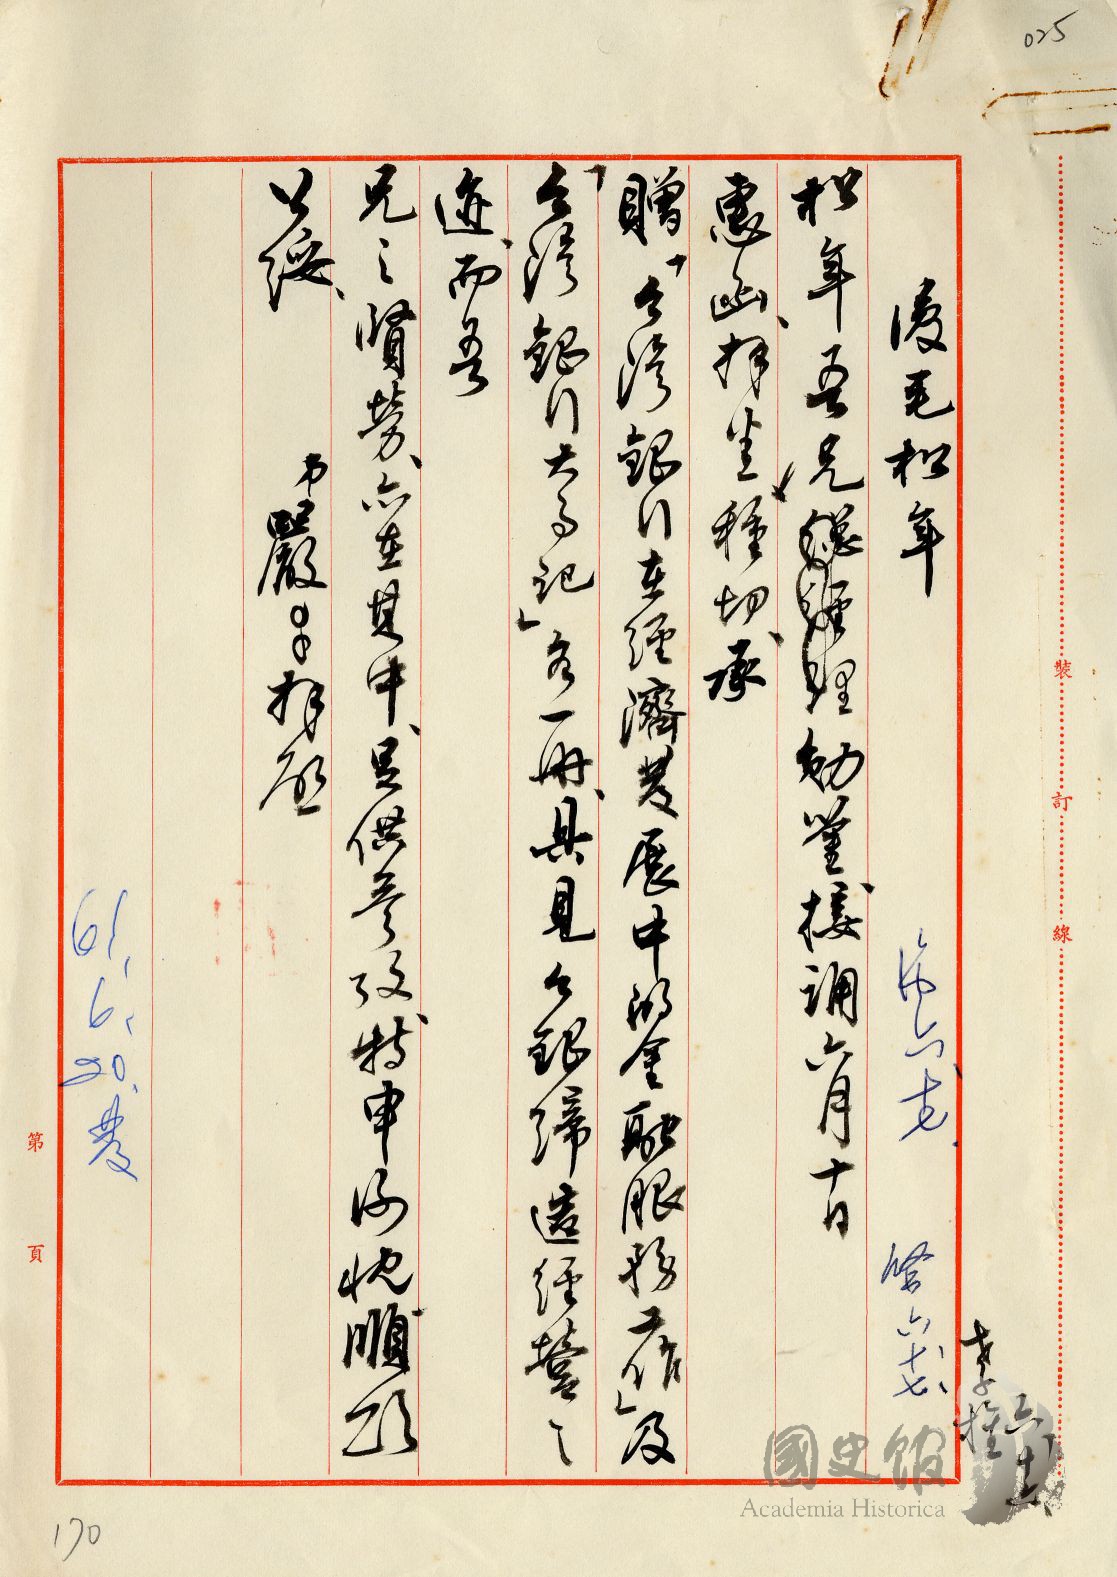 025
復毛松年
松年吾兄總經理勛鑒接誦六月十日
惠函、拜悉種切、承
贈「台灣銀行在經濟發展中的金融服務工作」及
「台灣銀行大事記」各一冊、具見台銀締造經營之
迹、而吾
兄之賢勞、亦在其中、足供參攷、特申謝忱順頌
公綏、
弟嚴○○拜啟
61、6、20、發
六
李
裝
訂
線
第
頁
170
國史館
Academia Historica